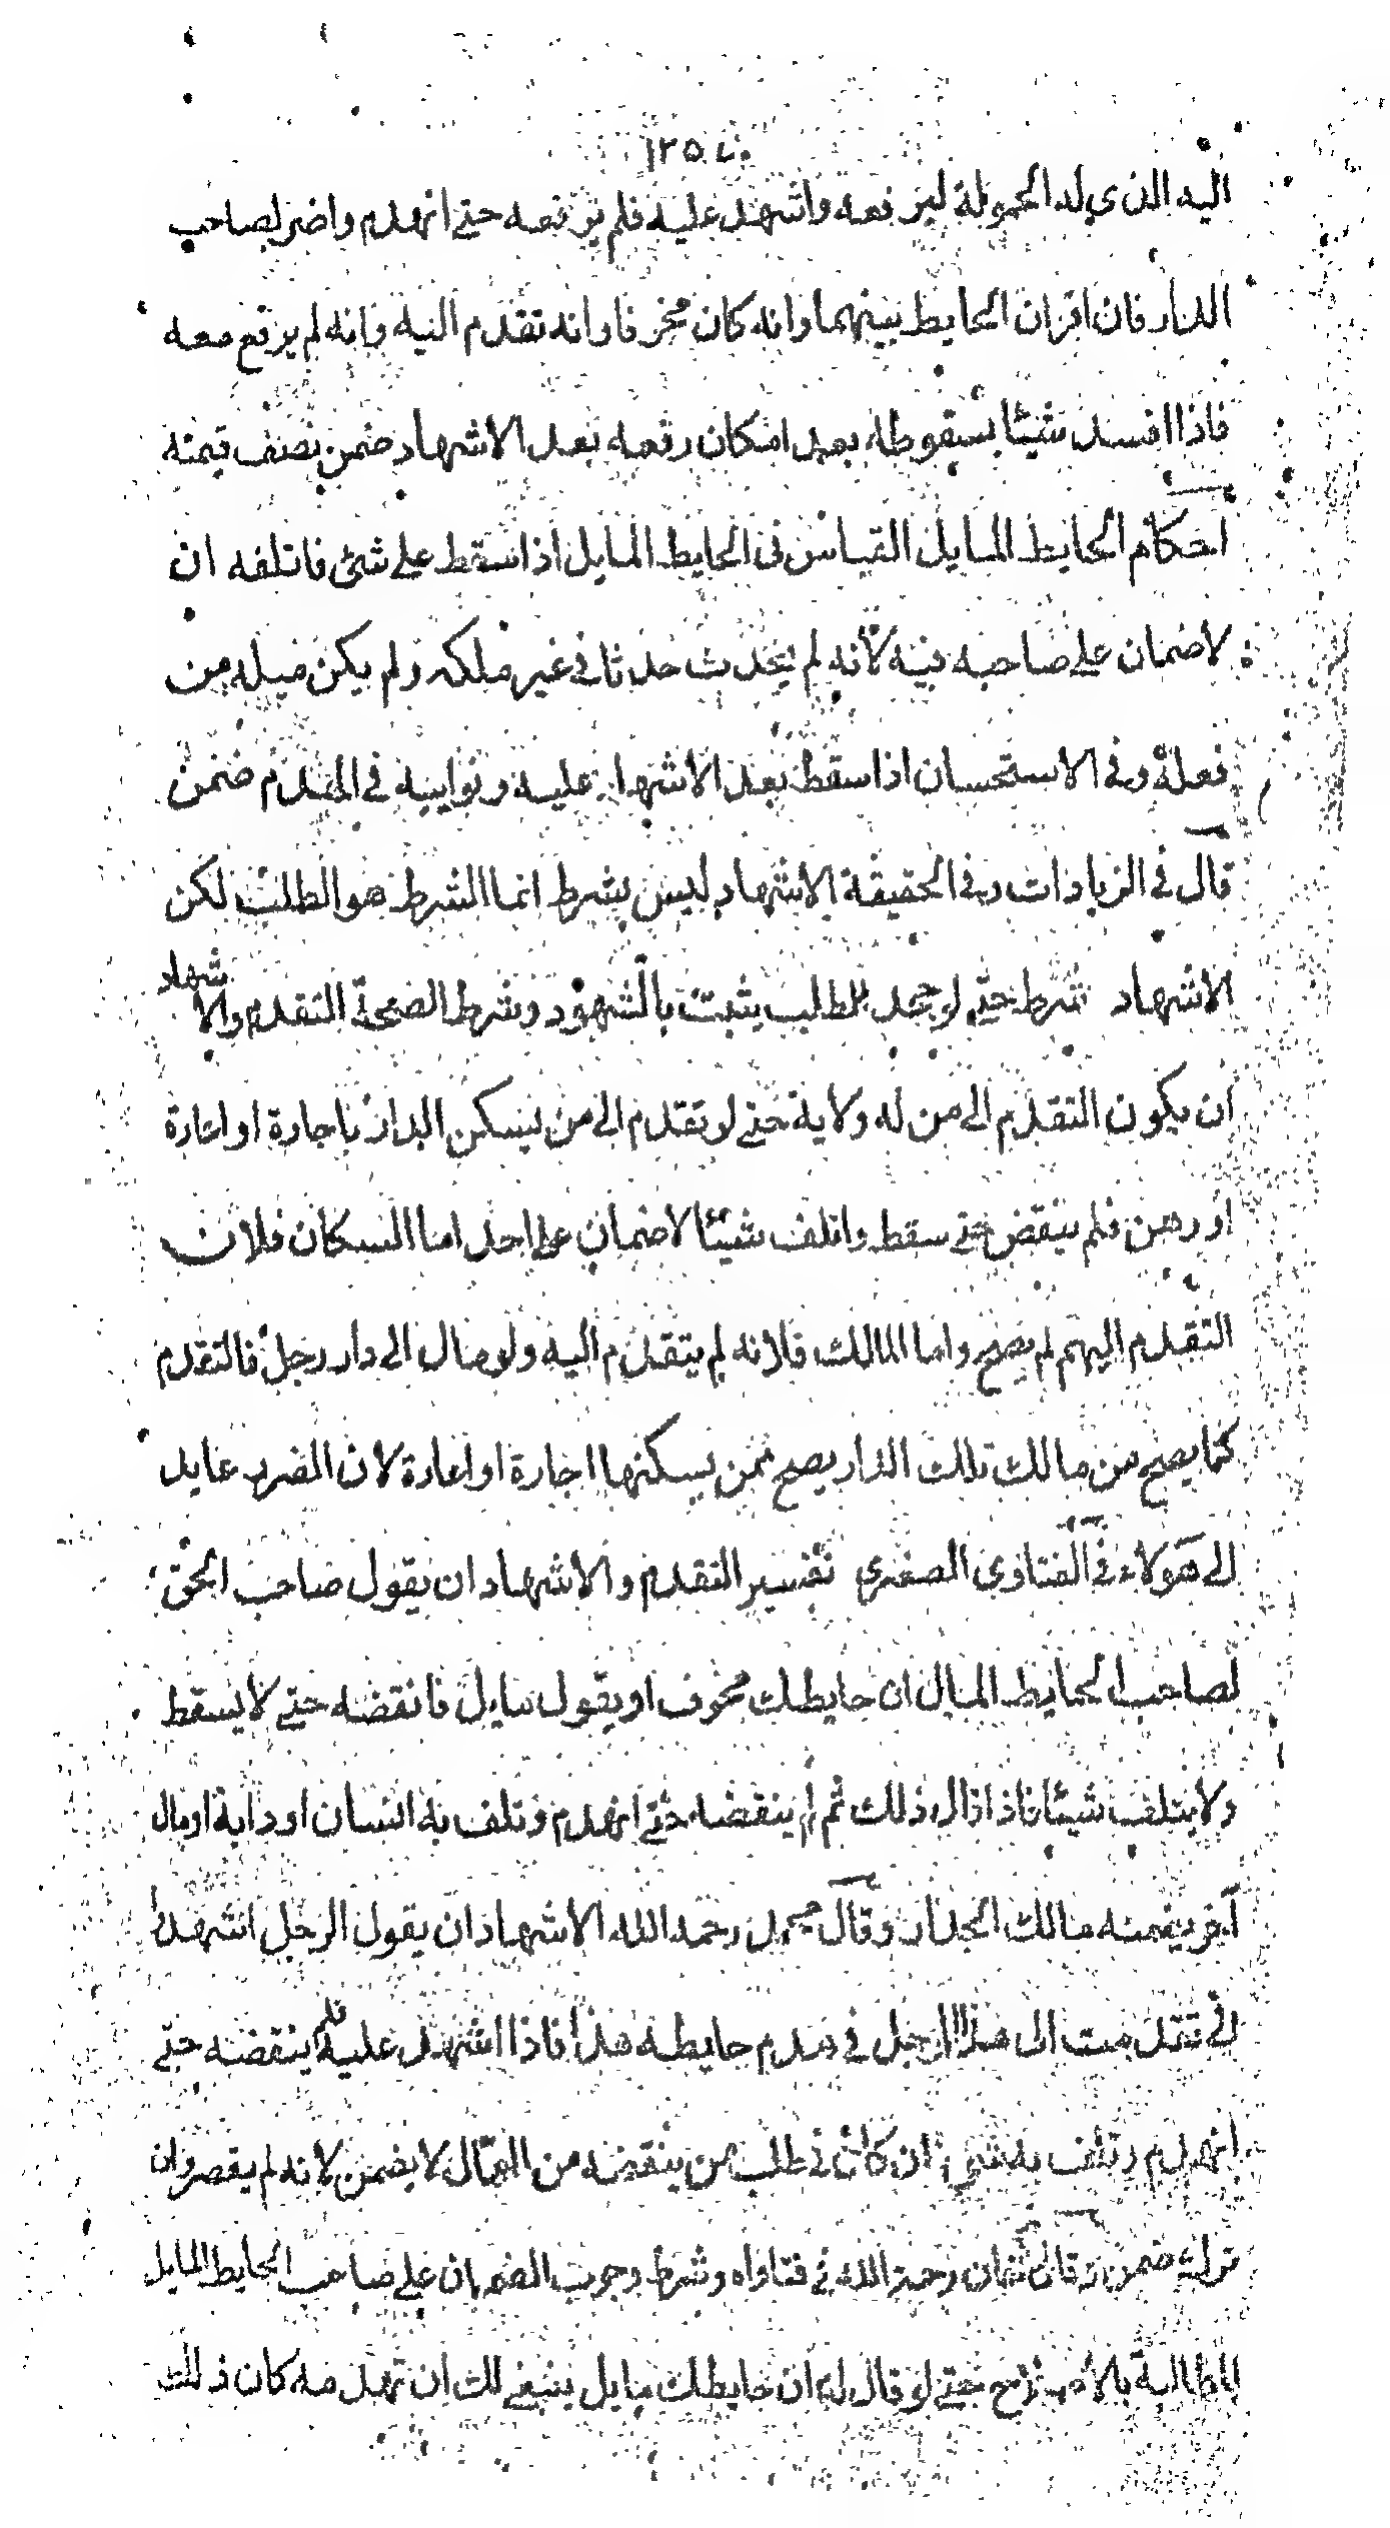 ١٢٥
اليه الذي له الحمولة ليرفعه واشهد عليه فلم يرفعه حتى انهدم واضر لصاحب
الدار فان اقر ان الحايط بينهما وانه كان مخوفا وانه تقدم اليه وانه لم يرفع معه
فاذا افسد شيئا بسقوطه بعد امكان رفعه بعد الاشهاد ضمن نصف قيمته
احكام الحايط المايل القياس في الحايط المايل اذا سقط على شئ فاتلفه ان
لا ضمان على صاحبه فيه لأنه لم يحدث حدثا في غير ملكه ولم يكن ميله من
فعله وفي الاستحسان اذا سقط بعد الاشهاد عليه وتوانيه في الهدم ضمن
قال في الزيادات وفي الحقيقة الاشهاد ليس بشرط انما الشرط هو الطلب لكن
الاشهاد شرط حتى لو جحد الطلب يثبت بالشهود وشرط الصحة التقدم والاشهاد
ان يكون التقدم الى من له ولاية حتى لو تقدم الى من يسكن الدار باجارة او اعارة
او رهن فلم ينقض حتى سقط واتلف شيئا لا ضمان على احد اما السكان فلان
التقدم اليهم لم يصح واما المالك فلانه لم يتقدم اليه ولو مال الى دار رجل فالتقدم
كما يصح من مالك تلك الدار يصح ممن يسكنها اجارة او اعارة لان الضرر عايد
الى هؤلاء في الفتاوى الصغرى تفسير التقدم والاشهاد ان يقول صاحب الحق
لصاحب الحايط المايل ان حايطك مخوف او يقول مايل فانقضه حتى لا يسقط
ولا يتلف شيئا فاذا قال ذلك ثم لم ينقضه حتى انهدم وتلف به انسان او دابة او مال
آخر يضمنه مالك الجدار وقال محمد رحمه الله الاشهاد ان يقول الرجل اشهدوا
اني تقدمت الى هذا الرجل في هدم حايطه هذا فاذا اشهد عليه فلم ينقضه حتى
انهدم وتلف به شئ ان كان في طلب من ينقضه من العمال لا يضمن لانه لم يقصر وان
ترك ضمن وقال رحمه الله في فتاواه وشرط وجوب الضمان على صاحب الحايط المايل
المطالبة حتى لو قال له ان حايطك مايل ينبغي لك ان تهدمه كان ذلك